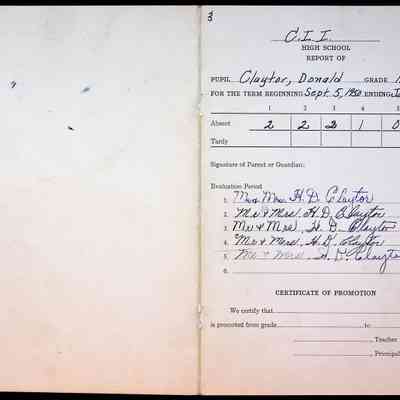 3
C. I. I.
HIGH SCHOOL
REPORT OF
PUPIL Claytor, Donald GRADE
FOR THE TERM BEGINNING Sept. 5, 1950 ENDING
1 2 3 4 5
Absent 2 2 2 1 0
Tardy
Signature of Parent or Guardian:
Evaluation Period
1. Mr & Mrs. H. D. Claytor
2. Mr & Mrs. H. D. Claytor
3. Mr & Mrs. H. D. Claytor
4. Mr & Mrs. H. D. Claytor
5. Mr & Mrs. H. D. Claytor
6.
CERTIFICATE OF PROMOTION
We certify that
is promoted from grade to
, Teacher
, Principal